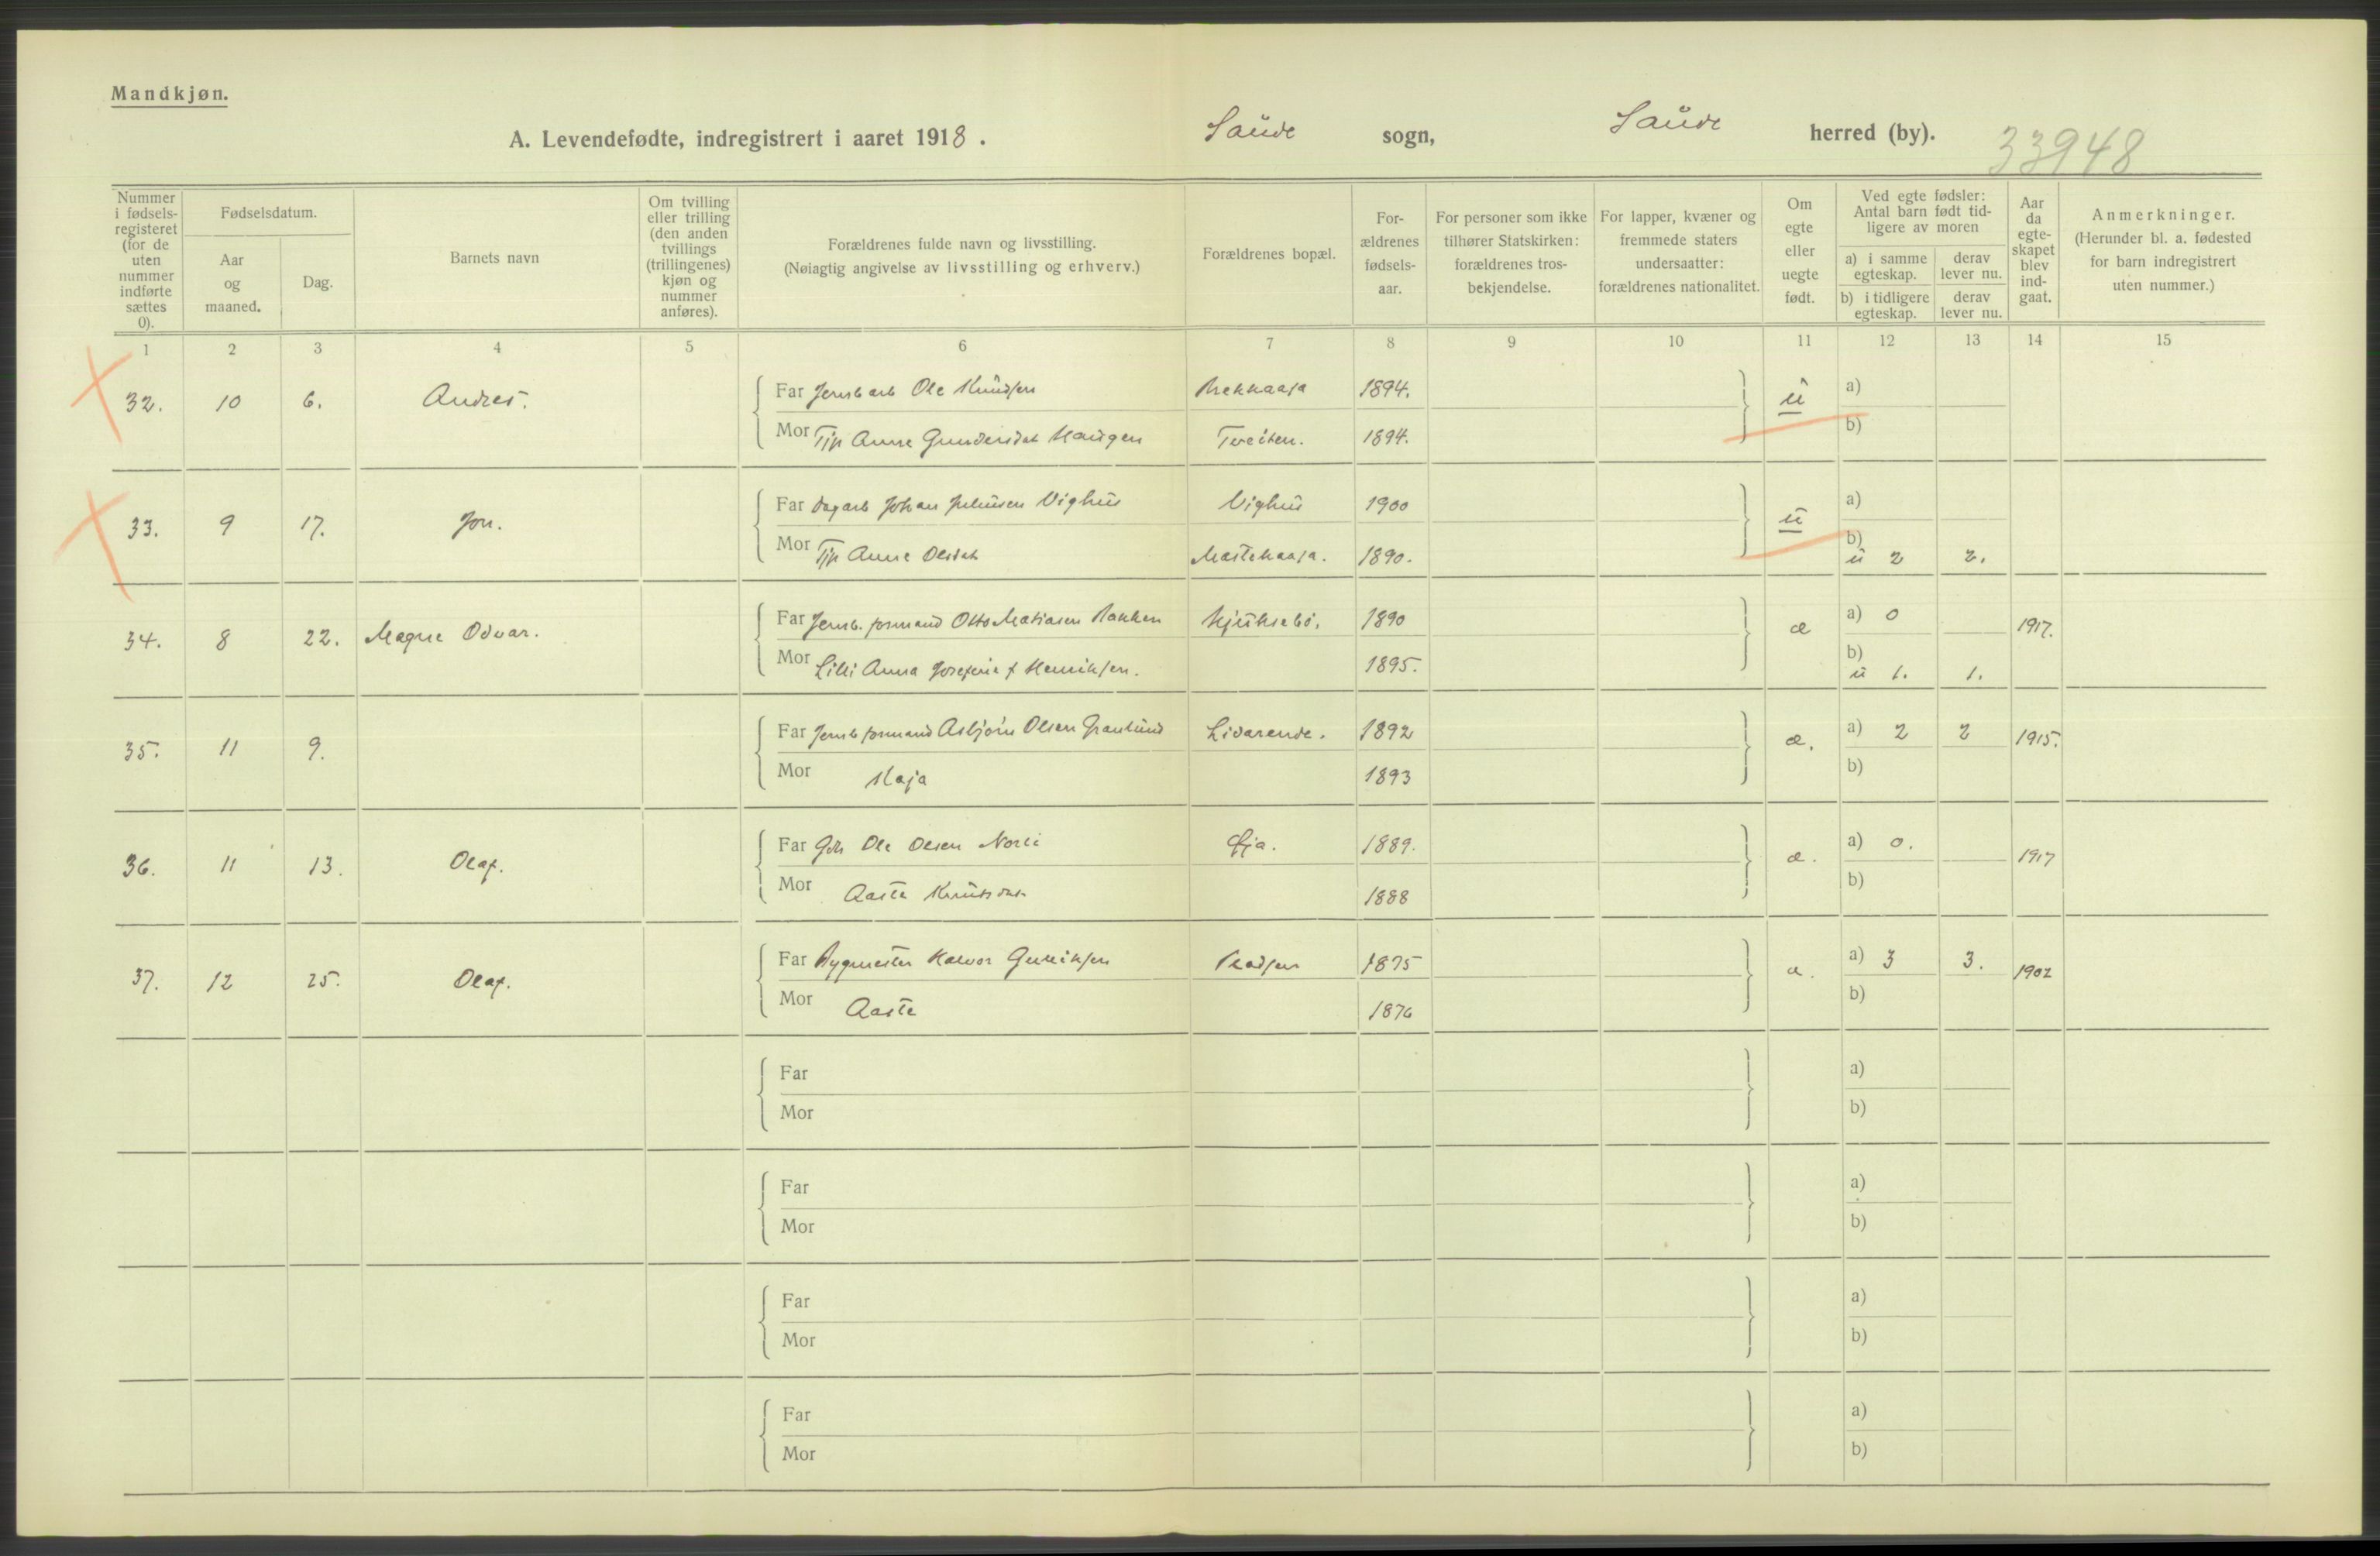 Mandkjøn.
A. Levendefødte, indregistrert i aaret 1918. Saude sogn, Saude herred (by). 33948
Nummer i fødsels-registeret (for de uten nummer indførte sættes 0).
Fødselsdatum.
Aar og maaned.
Dag.
Barnets navn
Om tvilling eller trilling (den anden tvillings (trillingenes) kjøn og nummer anføres).
Forældrenes fulde navn og livsstilling.
(Nøiagtig angivelse av livsstilling og erhverv.)
Forældrenes bopæl.
For-ældrenes fødsels-aar.
For personer som ikke tilhører Statskirken: forældrenes tros-bekjendelse.
For lapper, kvæner og fremmede staters undersaatter: forældrenes nationalitet.
Om egte eller uegte født.
Ved egte fødsler: Antal barn født tid-ligere av moren
a) i samme egteskap.
derav lever nu.
b) i tidligere egteskap.
derav lever nu.
Aar da egte-skapet blev ind-gaat.
Anmerkninger.
(Herunder bl. a. fødested for barn indregistrert uten nummer.)
1 2 3 4 5 6 7 8 9 10 11 12 13 14 15
32. 10 6. Andres. Far Jernb arb Ole Knudsen 1894. u a)
Mor Tjp Anne Gundersdat Haugen Tveiten. 1894. b)
33. 9 17. Jon. Far dagarb Johan Vighus Vighus 1900 u a)
Mor Tjp Anne Olsdat 1890. b) u 2 2.
34. 8 22. Magne Odvar. Far Jernb. formand Otto Matiasen Bakken Hjuksebö. 1890 æ a) 0 1917.
Mor Lilli Anna Josefine f Henriksen. 1895. b) u 1. 1.
35. 11 9. Far Jernb formand Asbjörn Olsen Granlund Livarende. 1892 æ. a) 2 2 1915.
Mor Kaja 1893 b)
36. 11 13. Olaf. Far Gbr Ole Olsen Norli 1889. æ. a) 0. 1917
Mor Aaste Knutsdat 1888 b)
37. 12 25. Olaf. Far Bygmester Halvor Gunniksen 1875 æ. a) 3 3. 1902
Mor Aaste 1876 b)
Far a)
Mor b)
Far a)
Mor b)
Far a)
Mor b)
Far a)
Mor b)